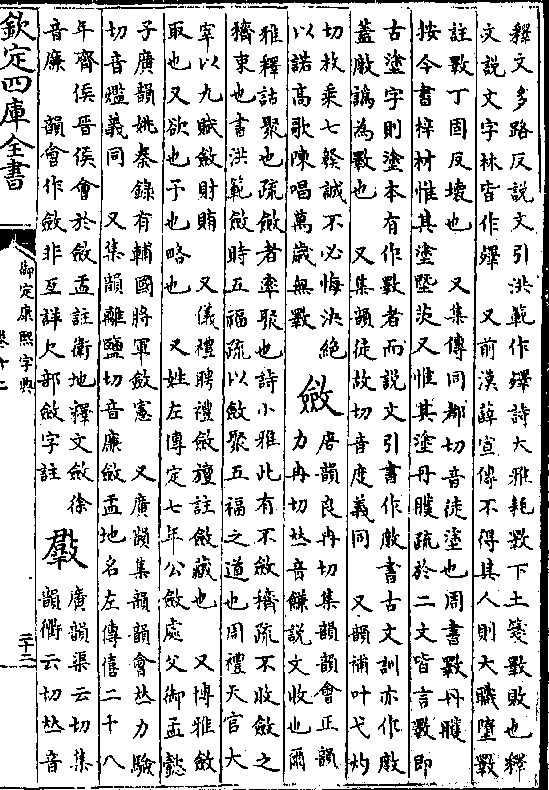 釋文多路反說文引洪範作殬詩大雅耗斁下土箋斁敗也釋
文說文字林皆作殬　又前漢薛宣傳不得其人則大職墮斁
註斁丁固反壞也　又集傳同都切音徒塗也周書斁丹雘
按今書梓材惟其塗塈茨又惟其塗丹雘疏於二文皆言斁即
古塗字則塗本有作斁者而說文引書作㪎書古文訓亦作㪎
蓋㪎譌為斁也　又集韻徒故切音度義同　又韻補叶弋灼
切枚乘七發誠不必悔決絕
以諾高歌陳唱萬歲無斁
斂
唐韻良冉切集韻韻會正韻
力冉切𠀤音㿕說文收也爾
雅釋詁聚也疏斂者率聚也詩小雅此有不斂穧疏不收斂之
穧束也書洪範斂時五福疏以斂聚五福之道也周禮天官大
宰以九賦斂財賄　又儀禮聘禮斂旜註斂藏也　又博雅斂
取也又欲也予也略也　又姓左傳定七年公斂處父御孟懿
子廣韻姚秦錄有輔國將軍斂憲　又廣韻集韻韻會𠀤力驗
切音爁義同　又集韻離鹽切音廉斂盂地名左傳僖二十八
年齊侯晉侯會於斂盂註衛地釋文斂徐
音廉　韻會作歛非互詳欠部歛字註
廣韻渠云切集
韻衢云切𠀤音
欽定四庫全書
御定康熙字典
卷十二
二十三